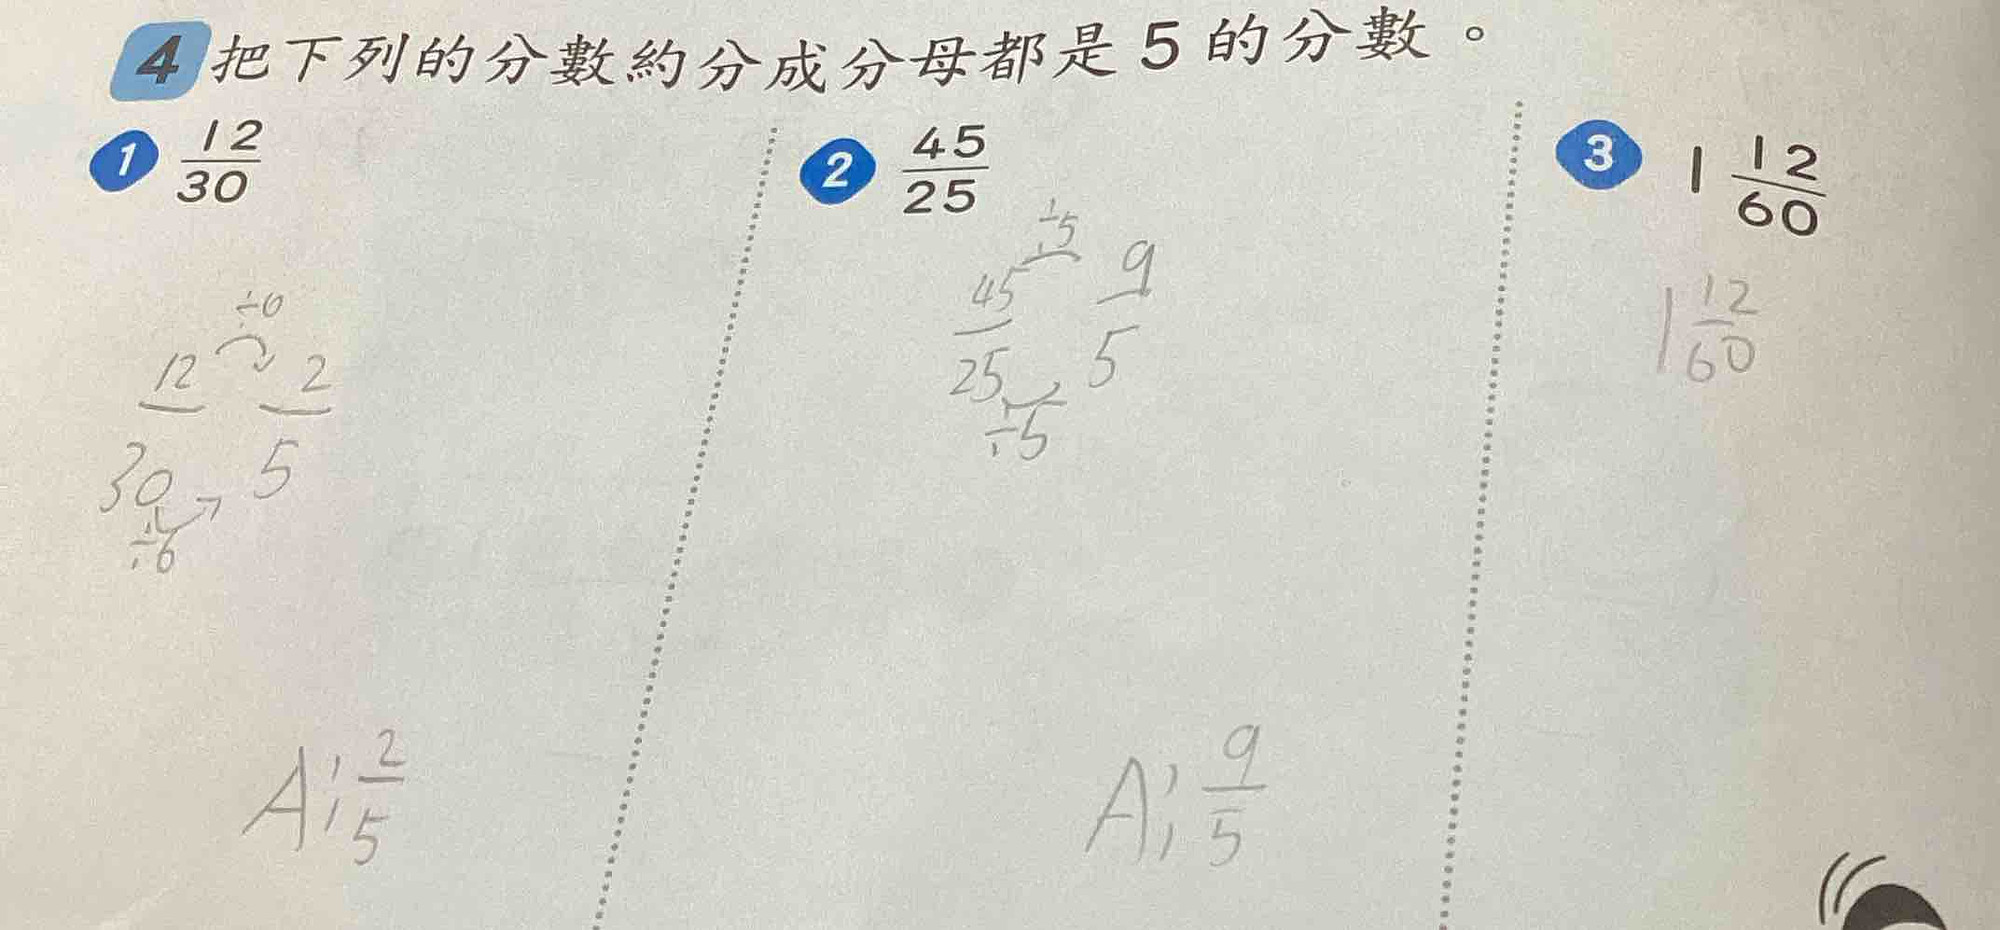 4 把下列的分數約分成分母都是5的分數。
1 12/30
÷6
12/30 2/5
÷6
A: 2/5
2 45/25
÷5
45/25 9/5
÷5
A: 9/5
3 1 12/60
1 12/60